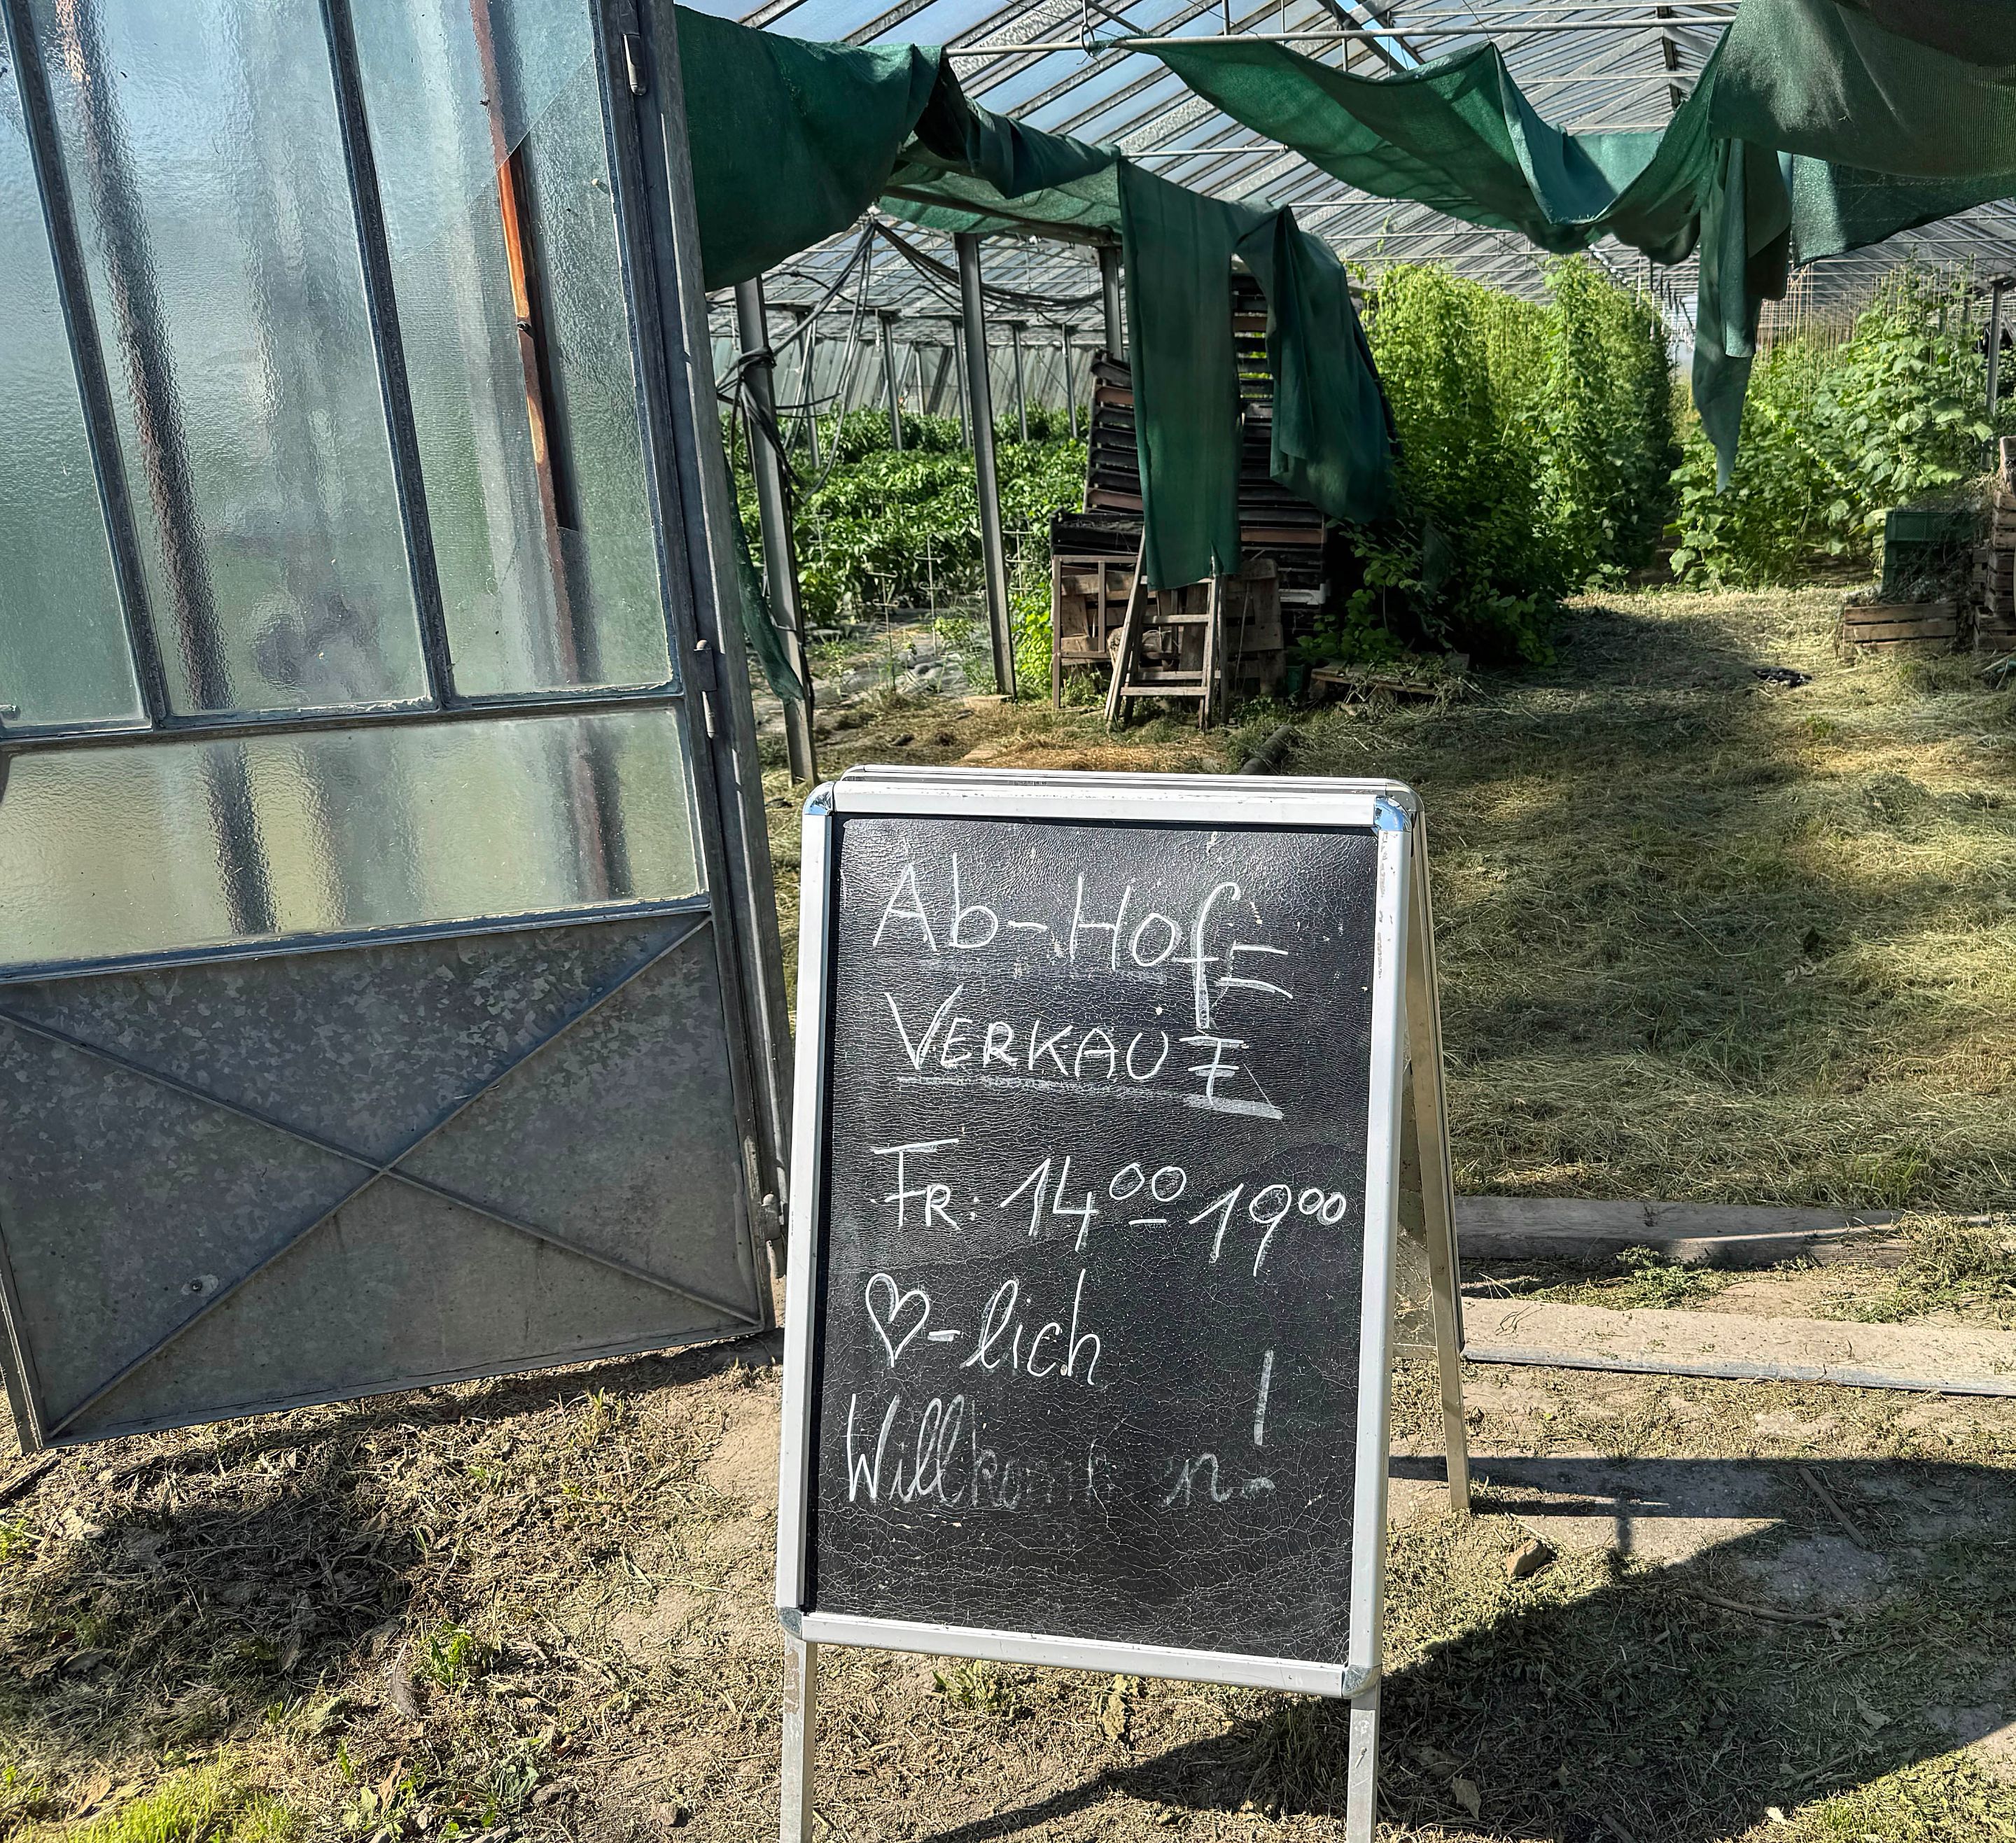 Ab-Hof=
VERKAUF
FR: 14⁰⁰-19⁰⁰
♡-lich
Willkommen!